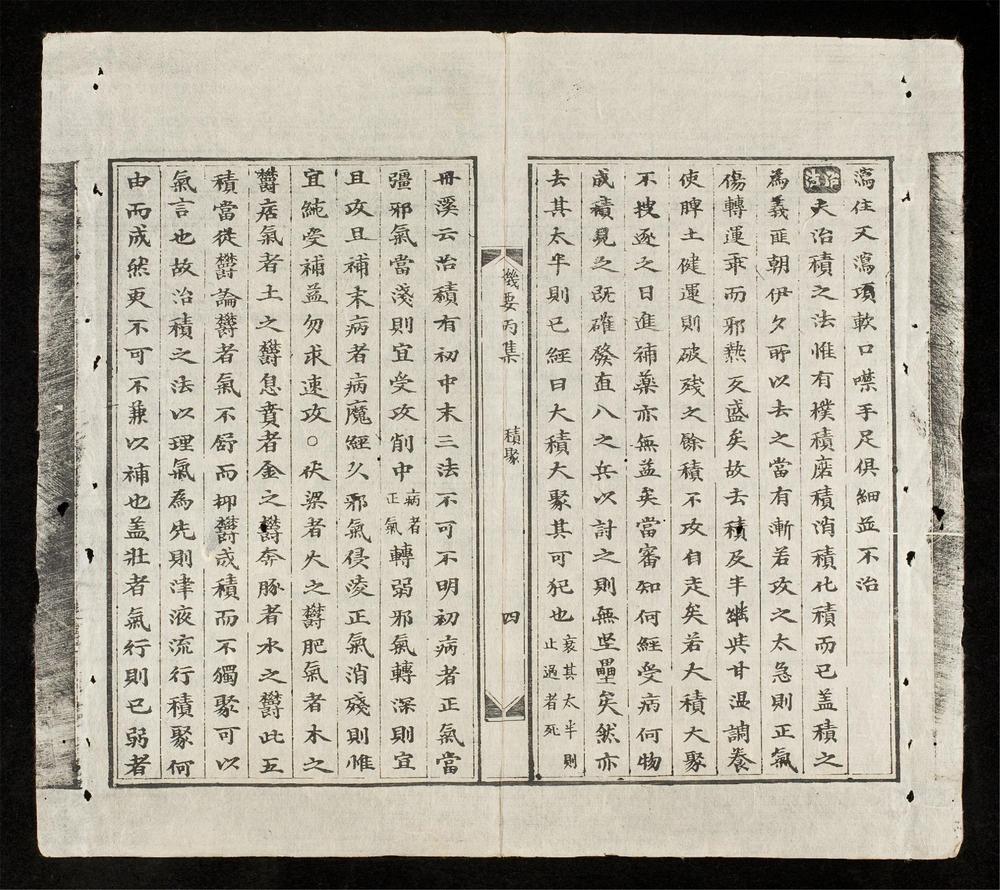 瀉住又瀉項軟口噤手足俱細並不治
夫治積之法惟有樸積磨積消積化積而已盖積之
為義匪朝伊夕所以去之當有漸若攻之太急則正氣
傷轉運乖而邪熱反盛矣故去積及半継與甘温調養
使脾土健運則破残之餘積不攻自走矣若大積大聚
不搜逐之日進補藥亦無益矣當審知何經受病何物
成積見之既確發直入之兵以討之則無坚壘矣然亦
去其太半則已經曰大積大聚其可犯也衰其太半則止過者死
機要 丙集 積聚 四
丹溪云治積有初中末三法不可不明初病者正氣當
彊邪氣當淺則宜受攻削中病者正氣轉弱邪氣轉深則宜
且攻且補末病者病魔經久邪氣侵凌正氣消殘則惟
宜純受補益勿求速攻○伏梁者火之欝肥氣者木之
欝痞氣者土之欝息賁者金之欝奔豚者水之欝此五
積當従欝論欝者氣不舒而抑欝成積而不獨聚可以
氣言也故治積之法以理氣為先則津液流行積聚何
由而成然更不可不兼以補也盖壯者氣行則已弱者